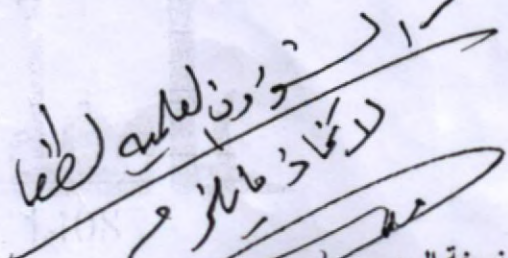 د. الشؤون العلمية لطفا
لاتخاذ ما يلزم